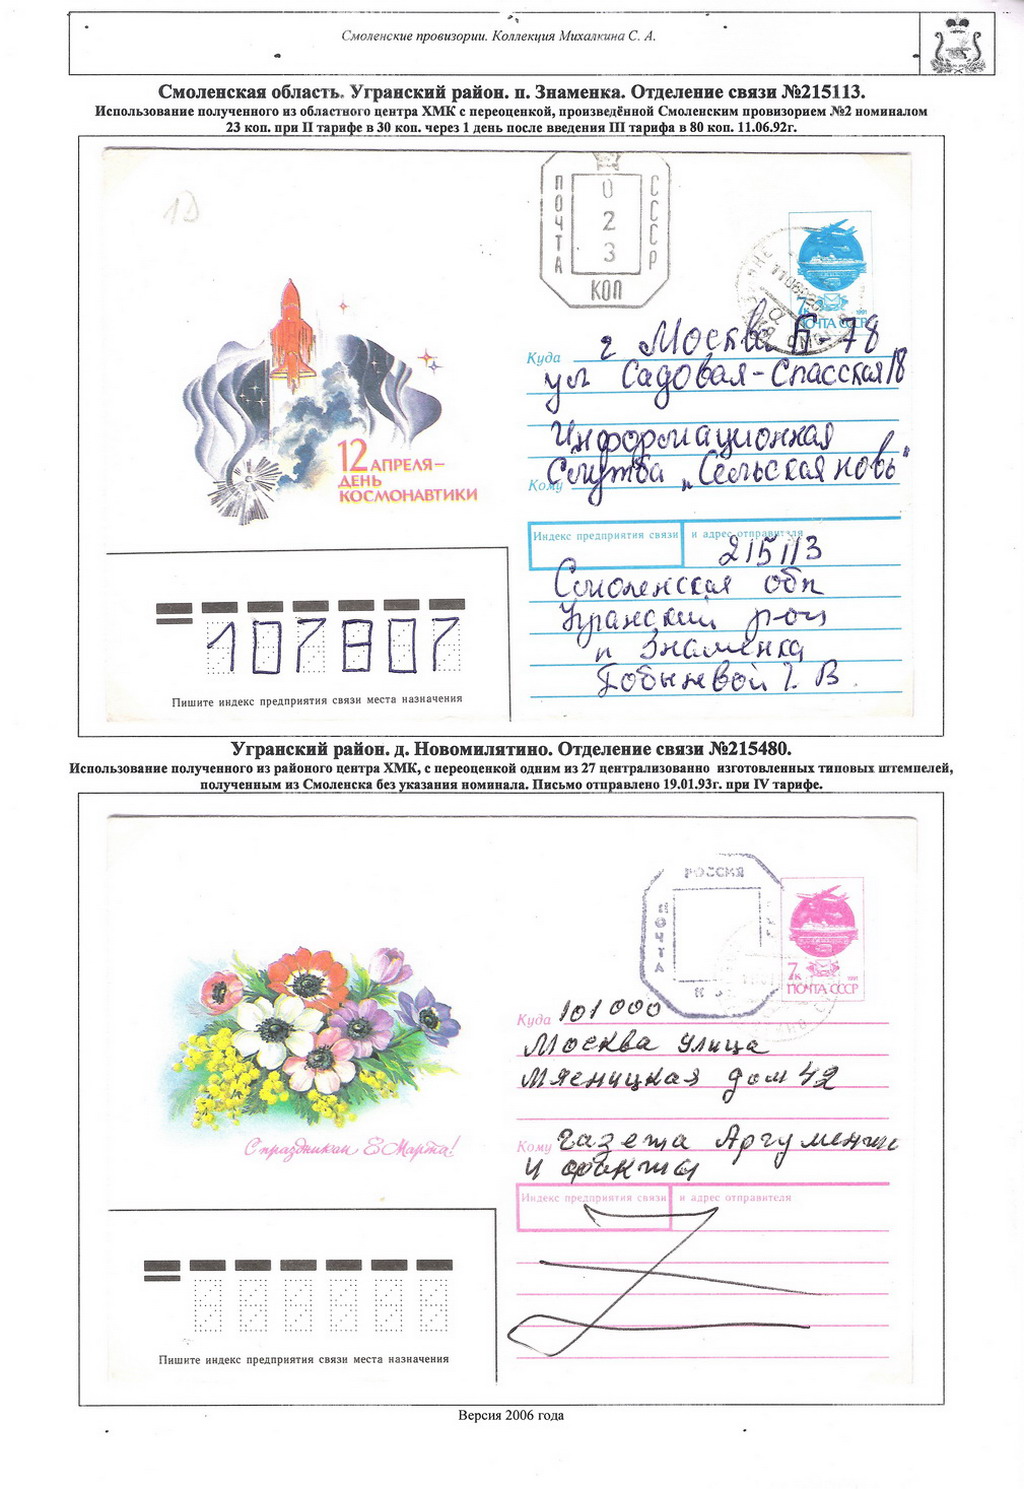 Смоленские провизории. Коллекция Михалкина С. А.
Смоленская область. Угранский район. п. Знаменка. Отделение связи №215113.
Использование полученного из областного центра ХМК с переоценкой, произведённой Смоленским провизорием №2 номиналом
23 коп. при II тарифе в 30 коп. через 1 день после введения III тарифа в 80 коп. 11.06.92г.
1D
ПОЧТА СССР
0
2
3
КОП
7к 1991
ПОЧТА СССР
Куда г Москва Б-78
ул Садовая-Спасская 18
Информационная
Кому Служба „Сельская новь"
12 АПРЕЛЯ–
ДЕНЬ
КОСМОНАВТИКИ
Индекс предприятия связи и адрес отправителя
215113
Смоленская обл
Угранский р-он
п Знаменка
Бобыневой Т. В.
107807
Пишите индекс предприятия связи места назначения
Угранский район. д. Новомилятино. Отделение связи №215480.
Использование полученного из районого центра ХМК, с переоценкой одним из 27 централизованно изготовленных типовых штемпелей,
полученным из Смоленска без указания номинала. Письмо отправлено 19.01.93г. при IV тарифе.
РОССИЯ
ПОЧТА
7к 1991
ПОЧТА СССР
Куда 101000
Москва улица
Мясницкая дом 42
Кому газета Аргументы
и факты
С праздником 8 Марта!
Индекс предприятия связи и адрес отправителя
Пишите индекс предприятия связи места назначения
Версия 2006 года